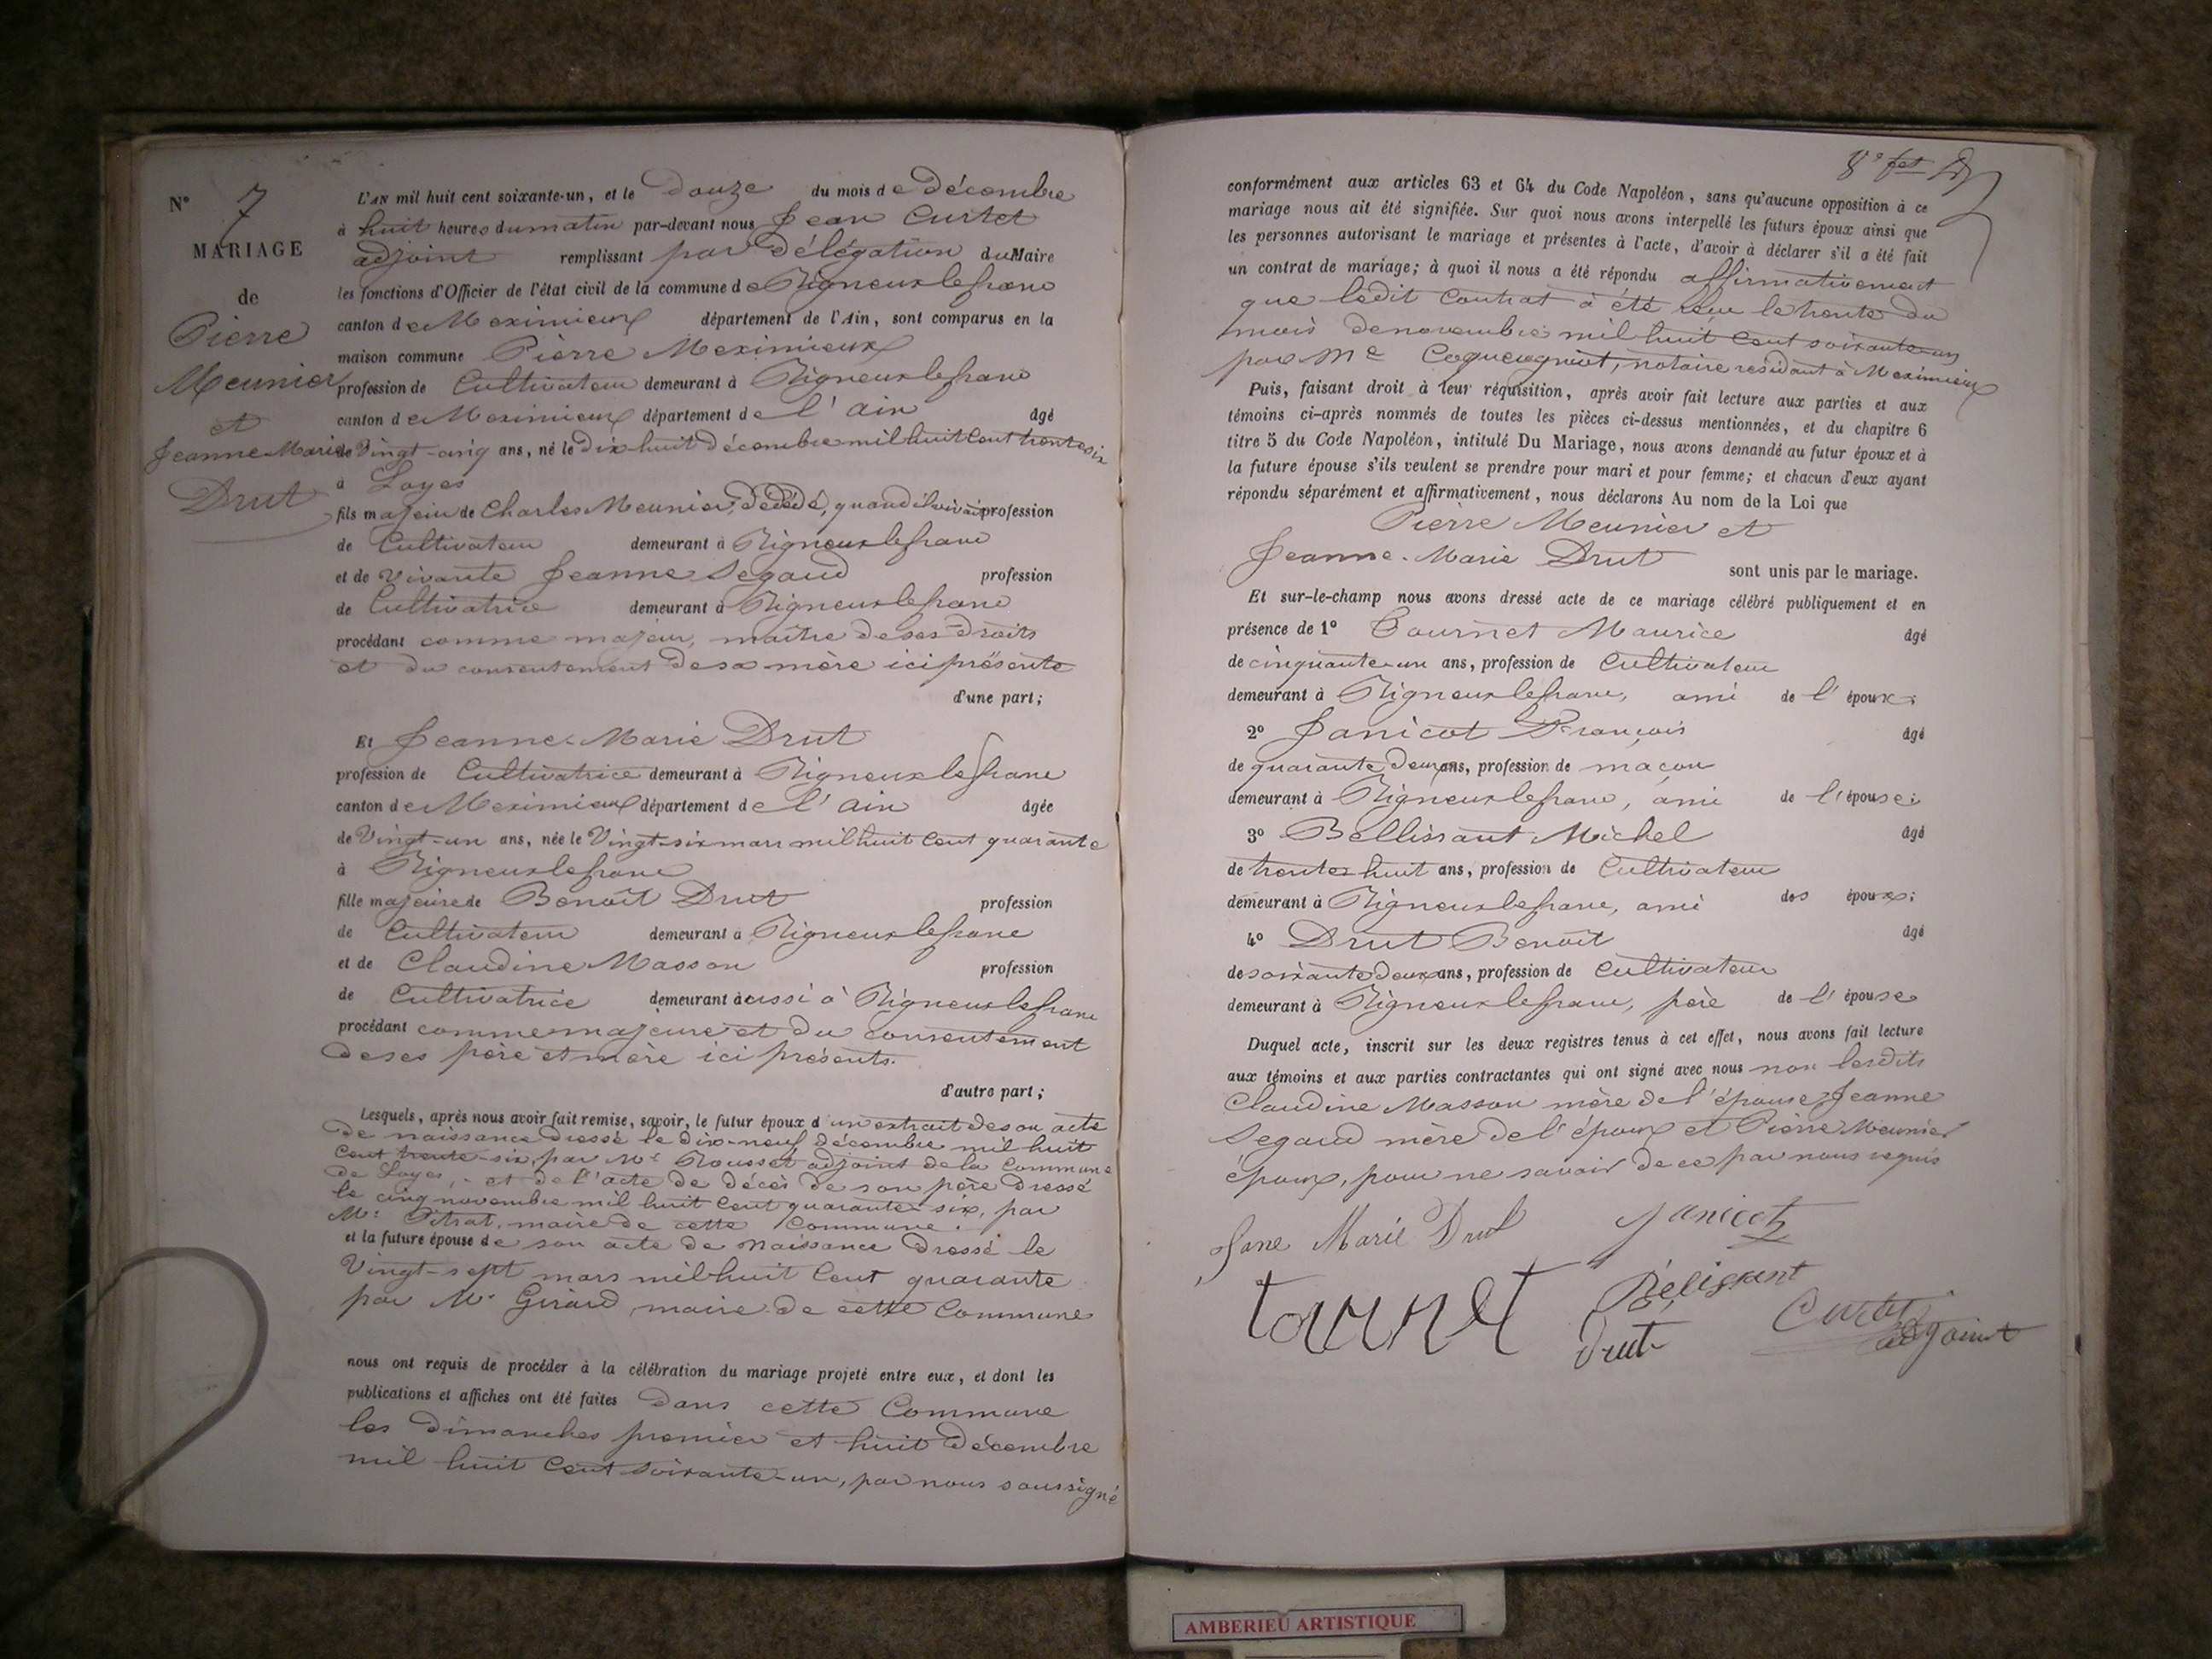 N° 7
MARIAGE
de
Pierre
Meunier
et
Jeanne-Marie
Drut
L'AN mil huit cent soixante-un, et le Douze du mois de Décembre
à huit heures du matin par-devant nous Jean Curtet
adjoint remplissant par Délégation du Maire
les fonctions d'Officier de l'état civil de la commune de Rigneux le franc
canton de Meximieux département de l'Ain, sont comparus en la
maison commune Pierre Meximieux
profession de Cultivateur demeurant à Rigneux le franc
canton de Meximieux département de l'ain âgé
de Vingt-cinq ans, né le Dix huit Décembre mil huit Cent trente six
à Loyes
fils majeur de Charles Meunier, Décédé, quand il vivait profession
de Cultivateur demeurant à Rigneux le franc
et de vivante Jeanne Segaud profession
de Cultivatrice demeurant à Rigneux le franc
procédant comme majeur, maître de ses droits
et du consentement de sa mère ici présente
d'une part;
Et Jeanne-Marie Drut
profession de Cultivatrice demeurant à Rigneux le franc
canton de Meximieux département de l'ain âgée
de Vingt-un ans, née le Vingt-six mars mil huit Cent quarante
à Rigneux le franc
fille majeure de Benoît Drut profession
de Cultivateur demeurant à Rigneux le franc
et de Claudine Masson profession
de Cultivatrice demeurant aussi à Rigneux le franc
procédant comme majeure et du consentement
de ses père et mère ici présents.
d'autre part;
Lesquels, après nous avoir fait remise, savoir, le futur époux d'un extrait de son acte
de naissance Dressé le Dix-neuf Décembre mil huit
Cent trente-six, par Mr Rousset adjoint de la Commune
de Loyes, et de l'acte de Décès de son père Dressé
le cinq novembre mil huit Cent quarante-six, par
Mr Pitrat, maire de cette Commune.
et la future épouse de son acte de Naissance Dressé le
Vingt-sept mars mil huit Cent quarante
par Mr Girard maire de cette Commune
nous ont requis de procéder à la célébration du mariage projeté entre eux, et dont les
publications et affiches ont été faites Dans cette Commune
les Dimanches premier et huit Décembre
mil huit Cent soixante-un, par nous soussigné
8e fet
conformément aux articles 63 et 64 du Code Napoléon, sans qu'aucune opposition à ce
mariage nous ait été signifiée. Sur quoi nous avons interpellé les futurs époux ainsi que
les personnes autorisant le mariage et présentes à l'acte, d'avoir à déclarer s'il a été fait
un contrat de mariage; à quoi il nous a été répondu affirmativement
que ledit Contrat a été reçu le trente du
mois de novembre mil huit Cent soixante-un
par Me notaire résidant à Meximieux
Puis, faisant droit à leur réquisition, après avoir fait lecture aux parties et aux
témoins ci-après nommés de toutes les pièces ci-dessus mentionnées, et du chapitre 6
titre 5 du Code Napoléon, intitulé Du Mariage, nous avons demandé au futur époux et à
la future épouse s'ils veulent se prendre pour mari et pour femme; et chacun d'eux ayant
répondu séparément et affirmativement, nous déclarons Au nom de la Loi que
Pierre Meunier et
Jeanne-Marie Drut sont unis par le mariage.
Et sur-le-champ nous avons dressé acte de ce mariage célébré publiquement et en
présence de 1° Tournet Maurice âgé
de cinquante-un ans, profession de Cultivateur
demeurant à Rigneux le franc, ami de l'époux;
2° Janicot François âgé
de quarante Deux ans, profession de maçon
demeurant à Rigneux le franc, ami de l'épouse;
3° Bellissant Michel âgé
de trente-huit ans, profession de Cultivateur
demeurant à Rigneux le franc, ami des époux;
4° Drut Benoît âgé
de soixante Deux ans, profession de Cultivateur
demeurant à Rigneux le franc, père de l'épouse
Duquel acte, inscrit sur les deux registres tenus à cet effet, nous avons fait lecture
aux témoins et aux parties contractantes qui ont signé avec nous non lesdits
Claudine Masson mère de l'épouse, Jeanne
Segaud mère de l'époux et Pierre Meunier
époux, pour ne savoir de ce par nous requis
Jane Marie Drut Janicot
tournet Bélissant
Drut Curtet adjoint
AMBERIEU ARTISTIQUE